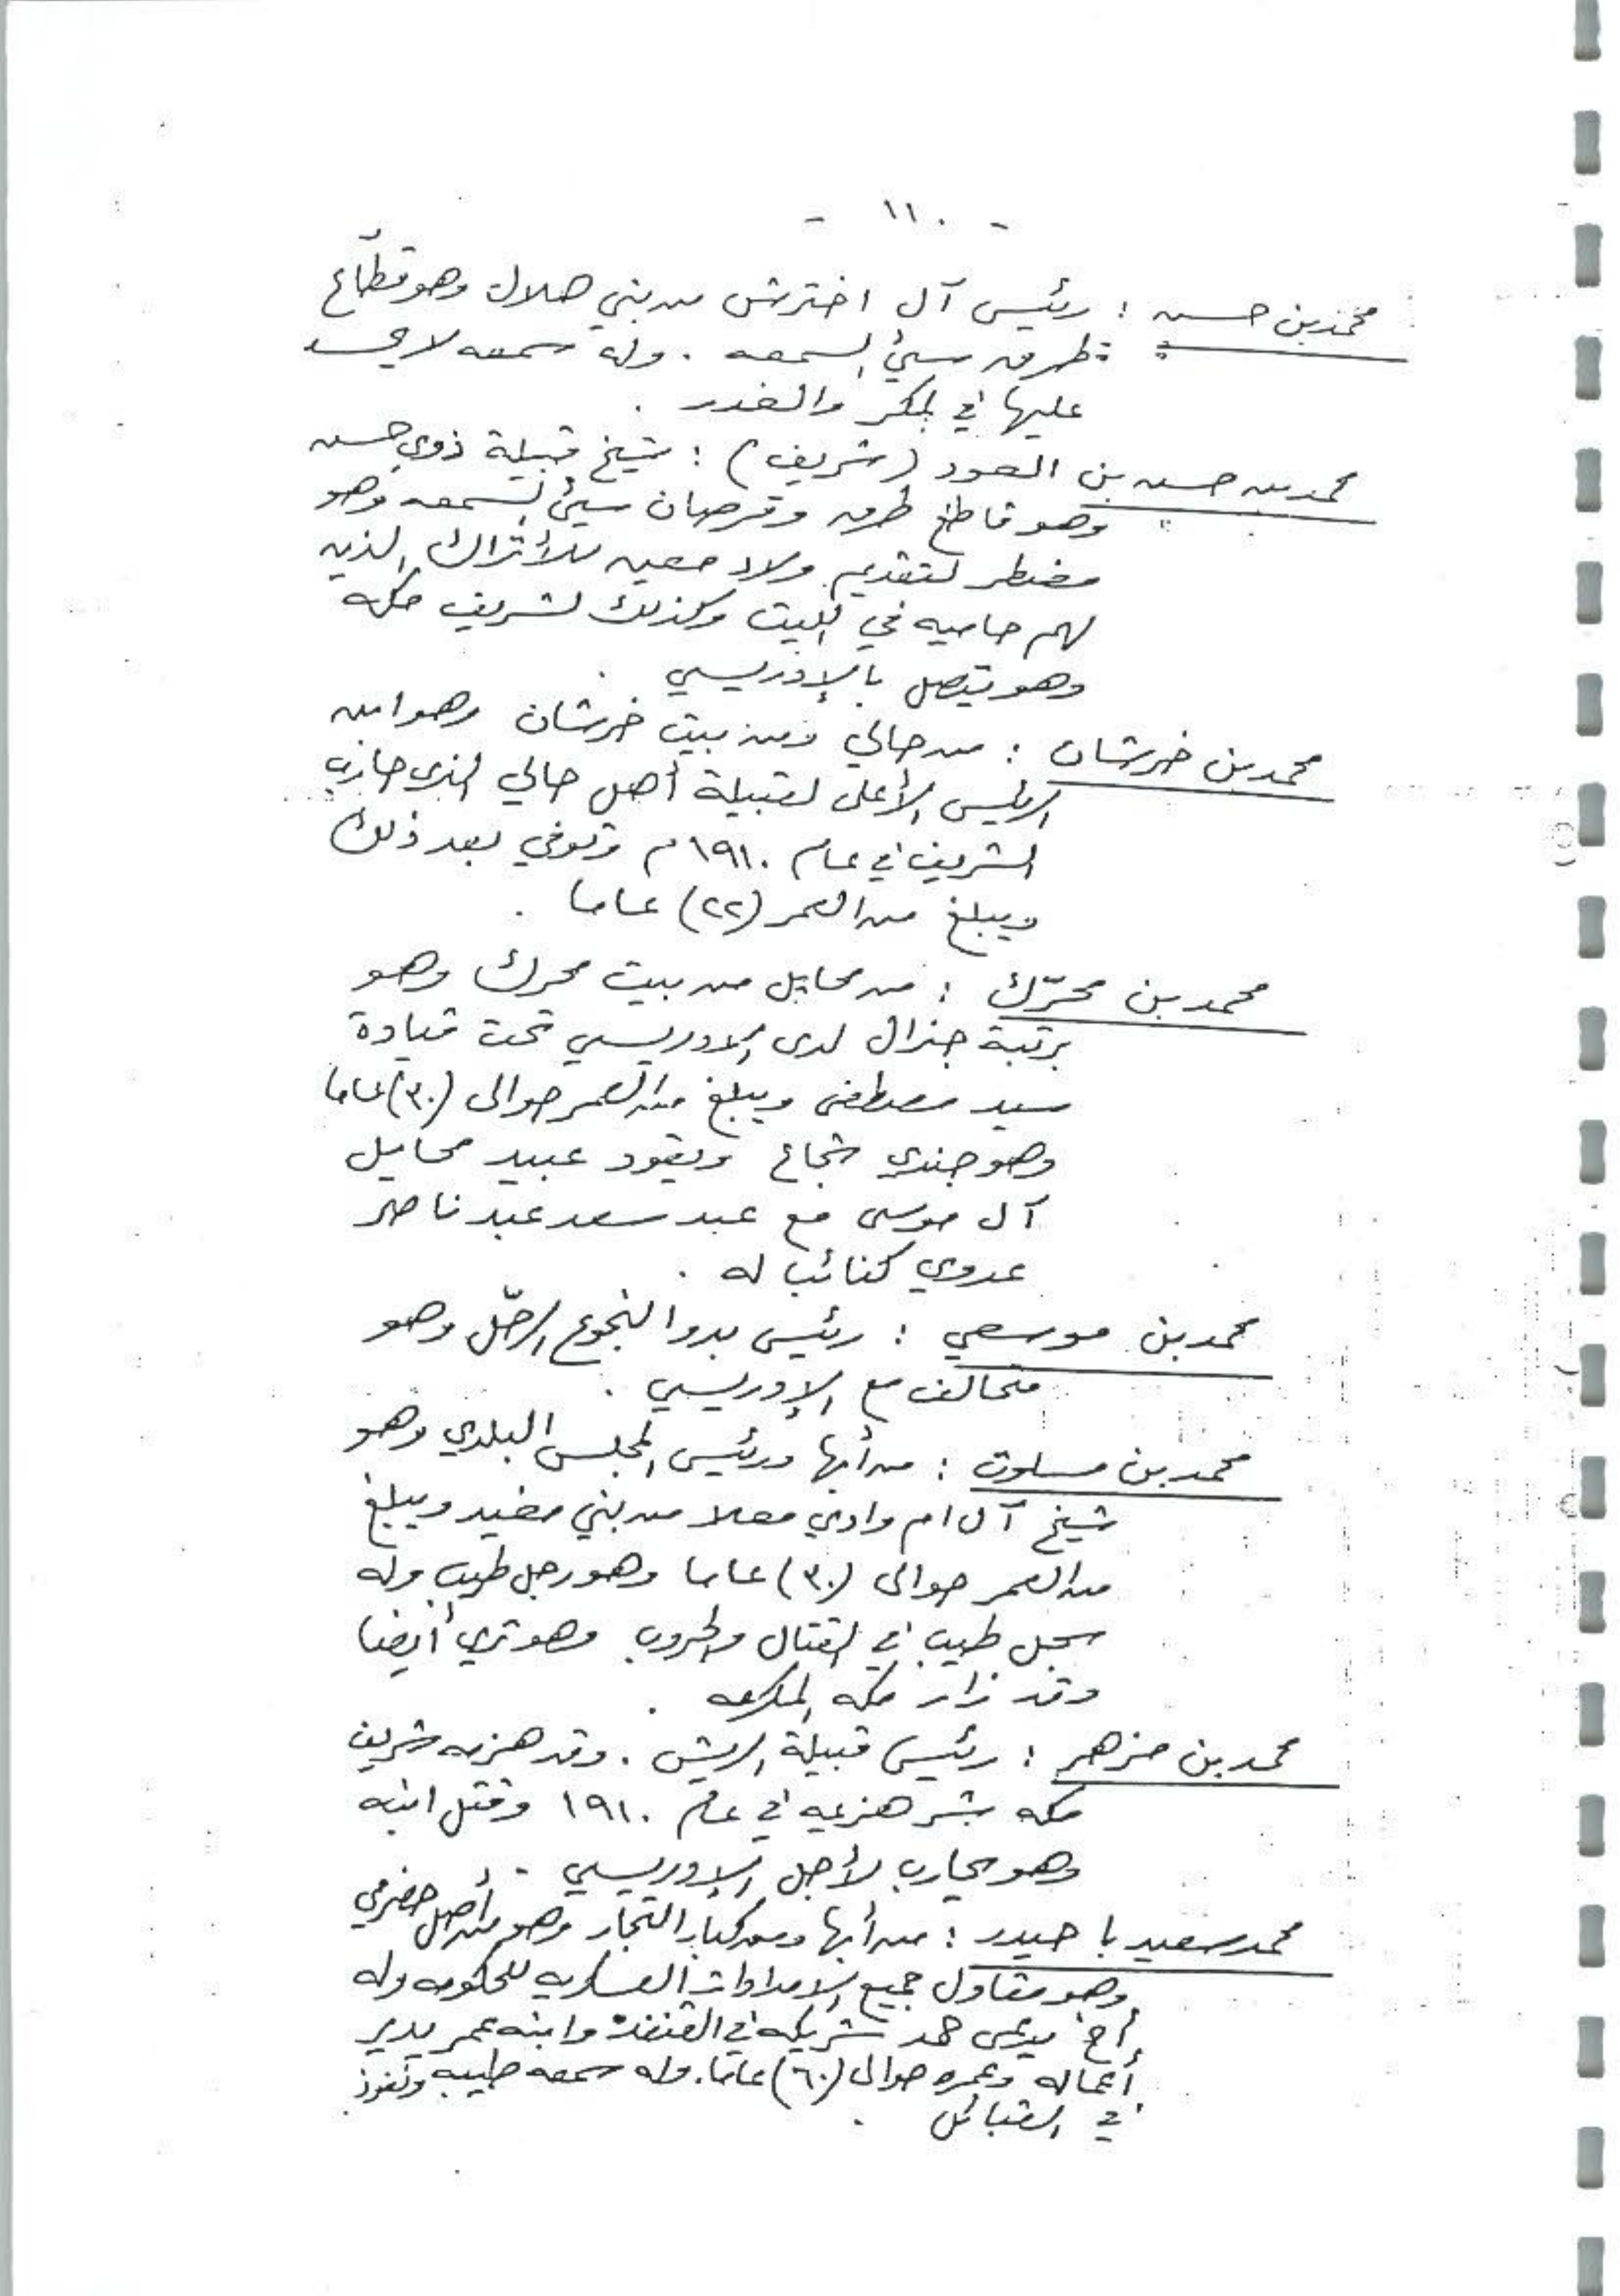 - ١١٠ -
محمد بن حسن : رئيس آل اخترش من بني هلال وهو قطّاع
طرق سيئ السمعه . وله سمعه لا يحسد
عليها في المكر والغدر .
محمد بن حسن بن العود (شريف) : شيخ قبيلة ذوي حسن
وهو قاطع طرق وقرصان سيئ السمعه وهو
مضطر لتقديم ولاء معين للأتراك الذين
لهم حاميه في الليث وكذلك لشريف مكه
وهو يتصل بالإدريسي .
محمد بن خرشان : من حالي ومن بيت خرشان وهو ابن
الرئيس الأعلى لقبيلة أهل حالي الذي حارب
الشريف في عام ١٩١٠م وتوفي بعد ذلك
ويبلغ من العمر (٢٢) عاما .
محمد بن محرّك : من محايل من بيت محرك وهو
برتبة جنرال لدى الادريسي تحت قيادة
سيد مصطفى ويبلغ من العمر حوالى (٣٠) عاما
وهو جندي شجاع ويقود عبيد محايل
آل موسى مع عبد سعد عبد ناصر
عدوي كنائب له .
محمد بن موسعي : رئيس بدو النجوع الرحّل وهو
متحالف مع الإدريسي .
محمد بن مسلوت : من أبها ورئيس المجلس البلدي وهو
شيخ آل ام وادي معلا من بني مغيد ويبلغ
من العمر حوالى (٣٠) عاما وهو رجل طيب وله
سجل طيب في القتال والحروب وهو ثري أيضا
وقد زار مكه المكرمه .
محمد بن مزهر : رئيس قبيلة الريش . وقد هزمه شريف
مكه بشر هزيمه في عام ١٩١٠ وقتل ابنه
وهو يحارب لأجل الإدريسي .
محمد سعيد با حيدر : من أبها ومن كبار التجار وهو من أصل حضرمي
وهو مقاول جميع الامدادات العسكريه للحكومه وله
أخ يدعى حمد شريكه في القنفذة وابنه عمر يدير
أعماله وعمره حوالى (٦٠) عاما. وله سمعه طيبه ونفوذ
في القبائل .